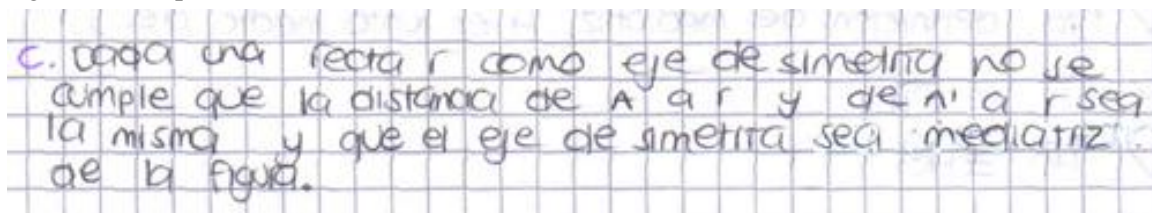 c. Dada una recta r como eje de simetría no se
cumple que la distancia de A a r y de A' a r sea
la misma y que el eje de simetría sea mediatriz
de la figura.